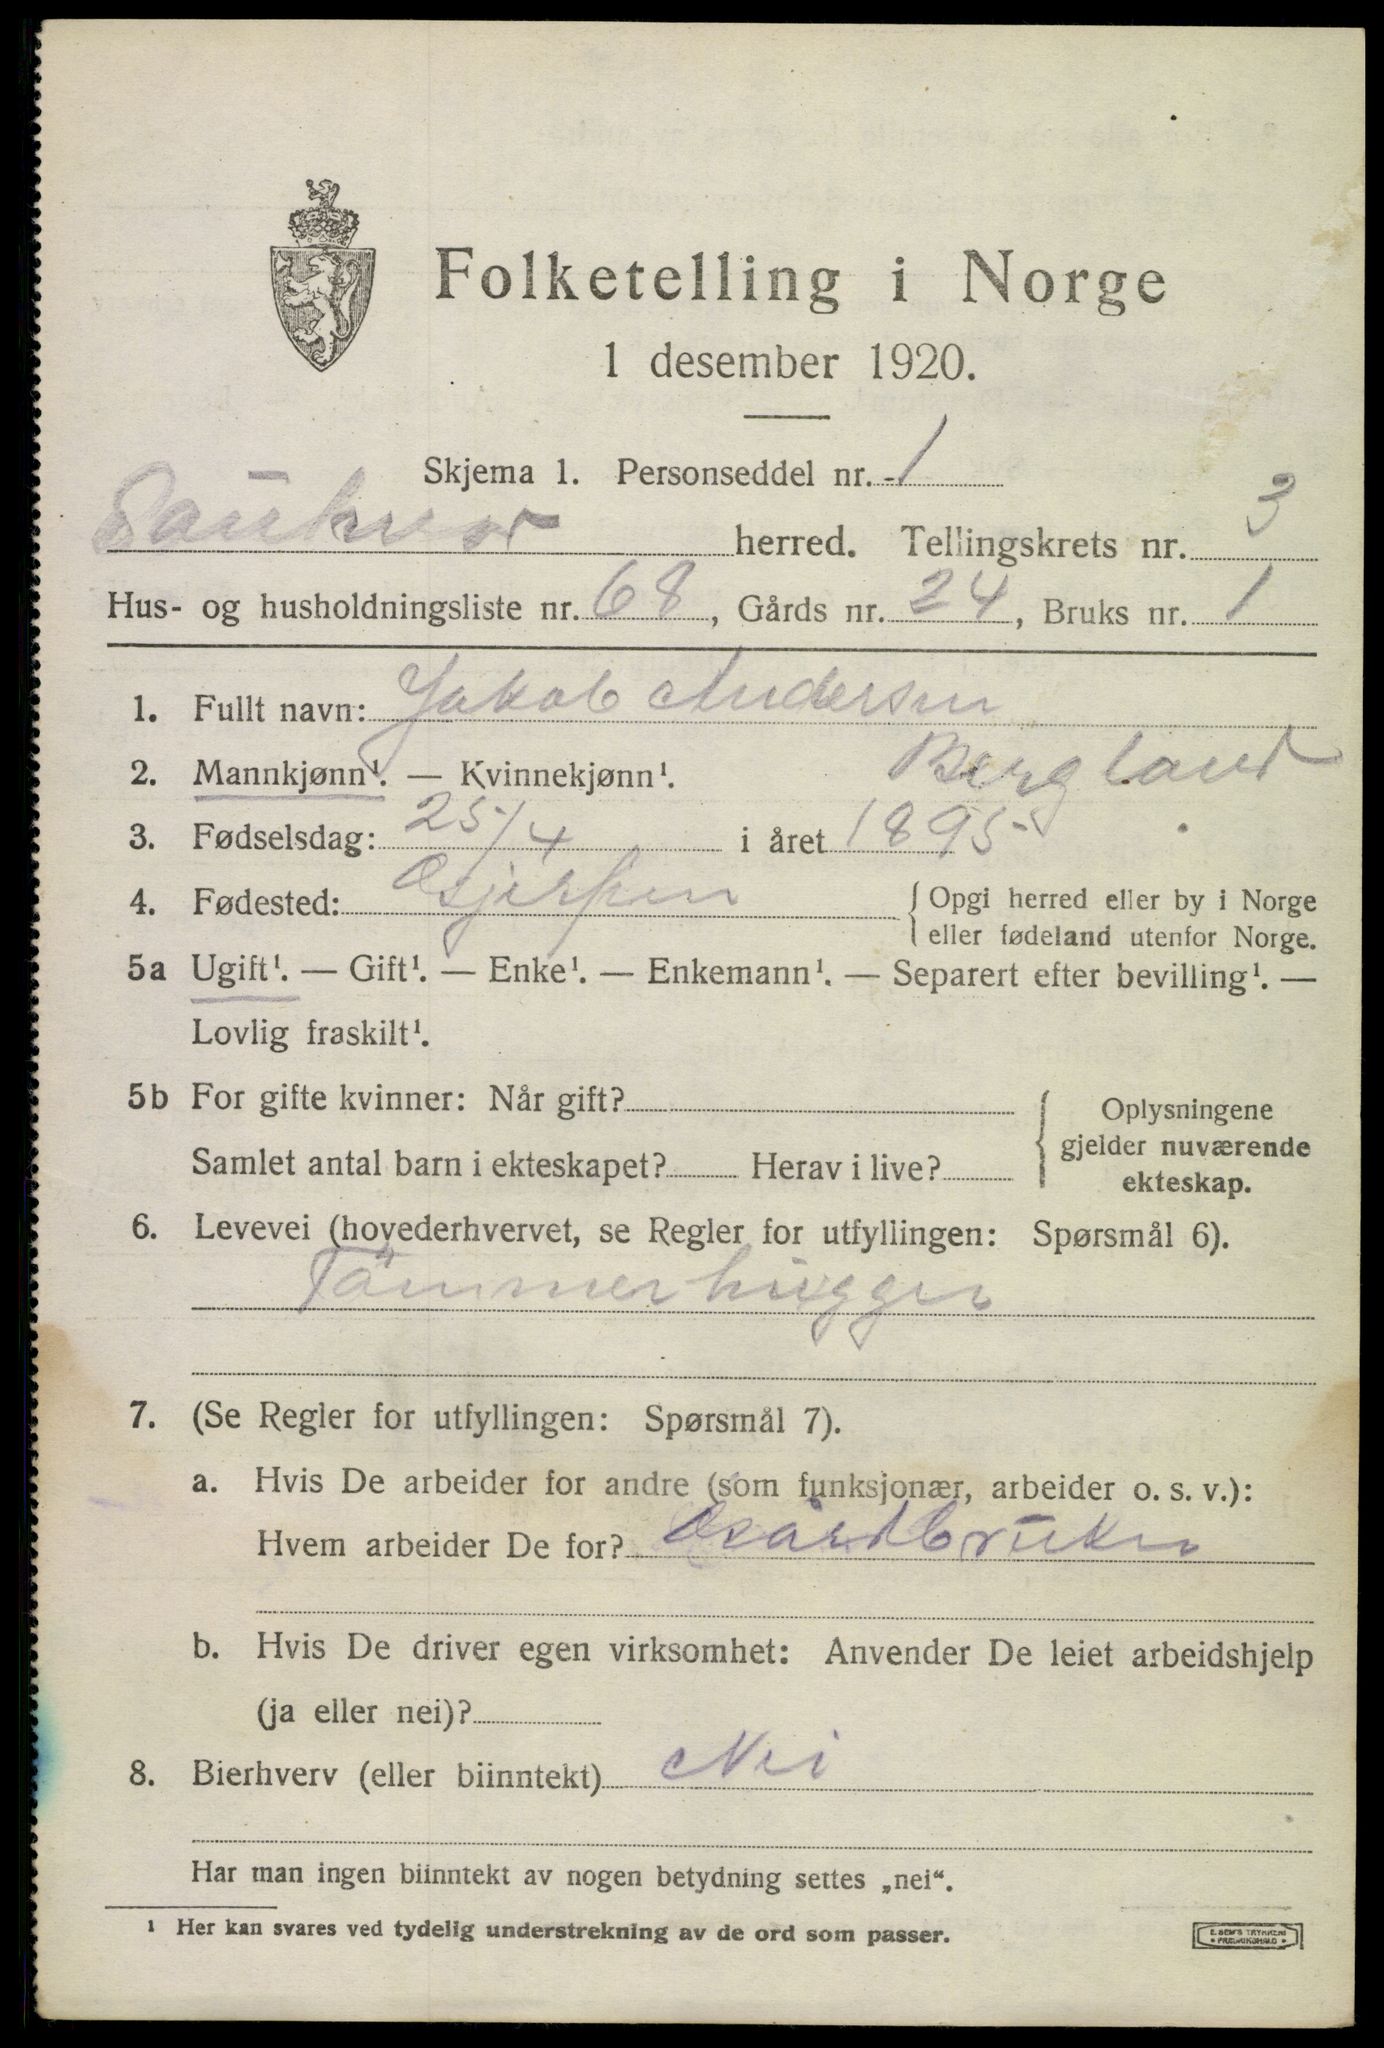 Folketelling i Norge
1 desember 1920.
Skjema 1. Personseddel nr. 1
Sauherad herred. Tellingskrets nr. 3
Hus- og husholdningsliste nr. 68, Gårds nr. 24, Bruks nr. 1
1. Fullt navn: Jakob Andersen
Bergland
2. Mannkjønn¹. — Kvinnekjønn¹.
3. Fødselsdag: 25/4 i året 1895
4. Fødested: Gjerpen { Opgi herred eller by i Norge
eller fødeland utenfor Norge.
5a Ugift¹. — Gift¹. — Enke¹. — Enkemann¹. — Separert efter bevilling¹. —
Lovlig fraskilt¹.
5b For gifte kvinner: Når gift?
Samlet antal barn i ekteskapet? Herav i live?
{ Oplysningene
gjelder nuværende
ekteskap.
6. Levevei (hovederhvervet, se Regler for utfyllingen: Spørsmål 6).
Tömmerhugger
7. (Se Regler for utfyllingen: Spørsmål 7).
a. Hvis De arbeider for andre (som funksjonær, arbeider o. s. v.):
Hvem arbeider De for? Gårdbruker
b. Hvis De driver egen virksomhet: Anvender De leiet arbeidshjelp
(ja eller nei)?
8. Bierhverv (eller biinntekt) Nei
Har man ingen biinntekt av nogen betydning settes „nei“.
¹ Her kan svares ved tydelig understrekning av de ord som passer.
E. SEM'S TRYKKERI
FREDRIKSHALD